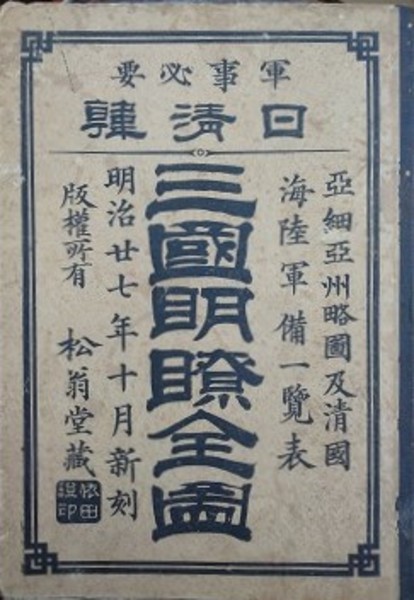 軍事必要
日清韓
亞細亞州略圖及清國
海陸軍備一覽表
三國明瞭全圖
明治廿七年十月新刻
版權所有
松翁堂藏